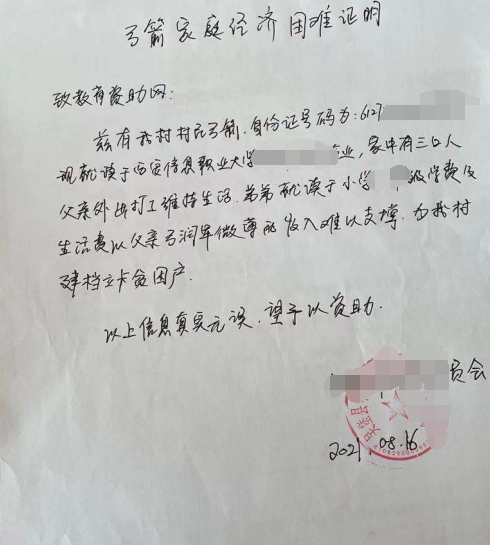 弓箭家庭经济困难证明
致教育资助网:
兹有我村村民弓箭,身份证号码为:6127
现就读于西安信息职业大学 业,家中有三口人
父亲外出打工维持生活.弟弟就读于小学 级学费及
生活费以父亲弓润军微薄的收入难以支撑,为我村
建档立卡贫困户.
以上信息真实无误,望予以资助.
员会
2021.08.16